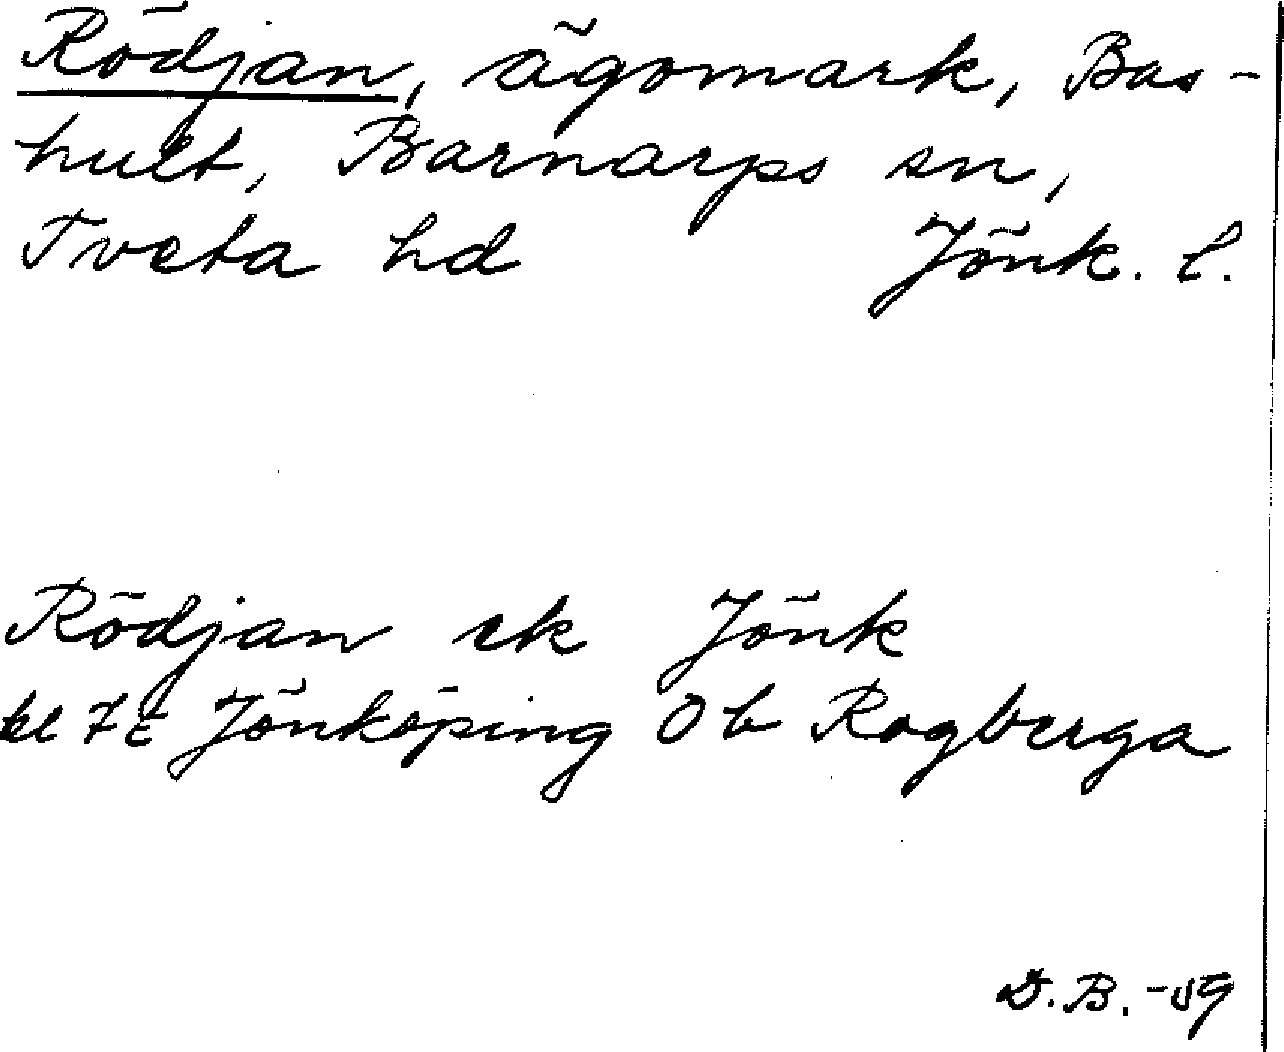 Rödjan, ägomark, Bas-
hult, Barnarps sn,
Tveta hd Jönk. l.
Rödjan ek Jönk
bl 7E Jönköping Ob Rogberga
D.B. -59